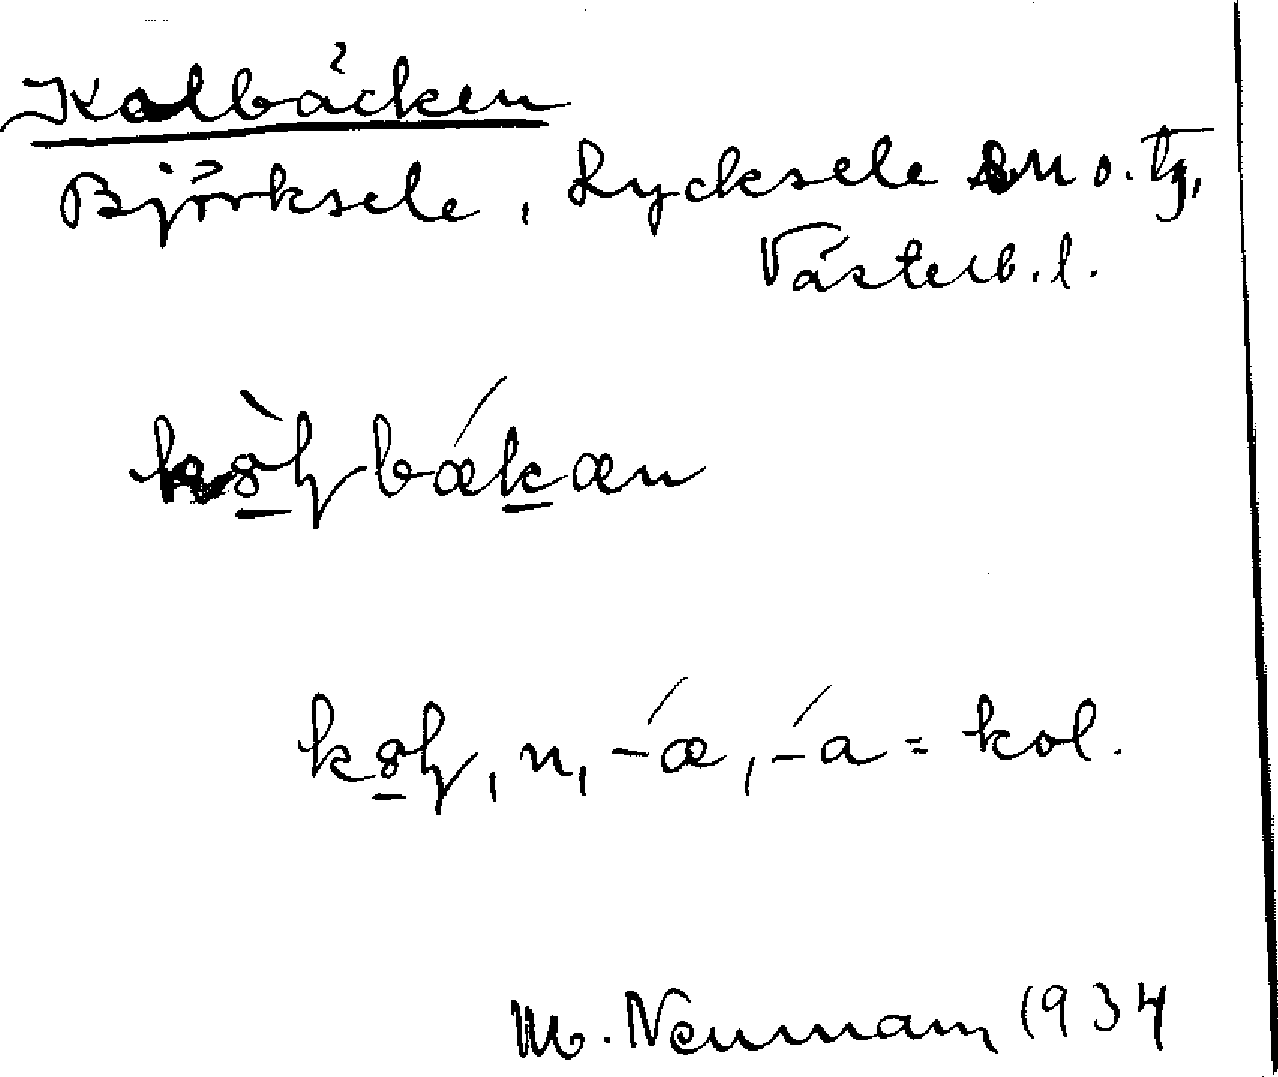 Kolbäcken
Björksele, Lycksele sn o. tg,
Västerb. l.
bækæn
n, -æ, -a = kol.
M. Neuman 1934